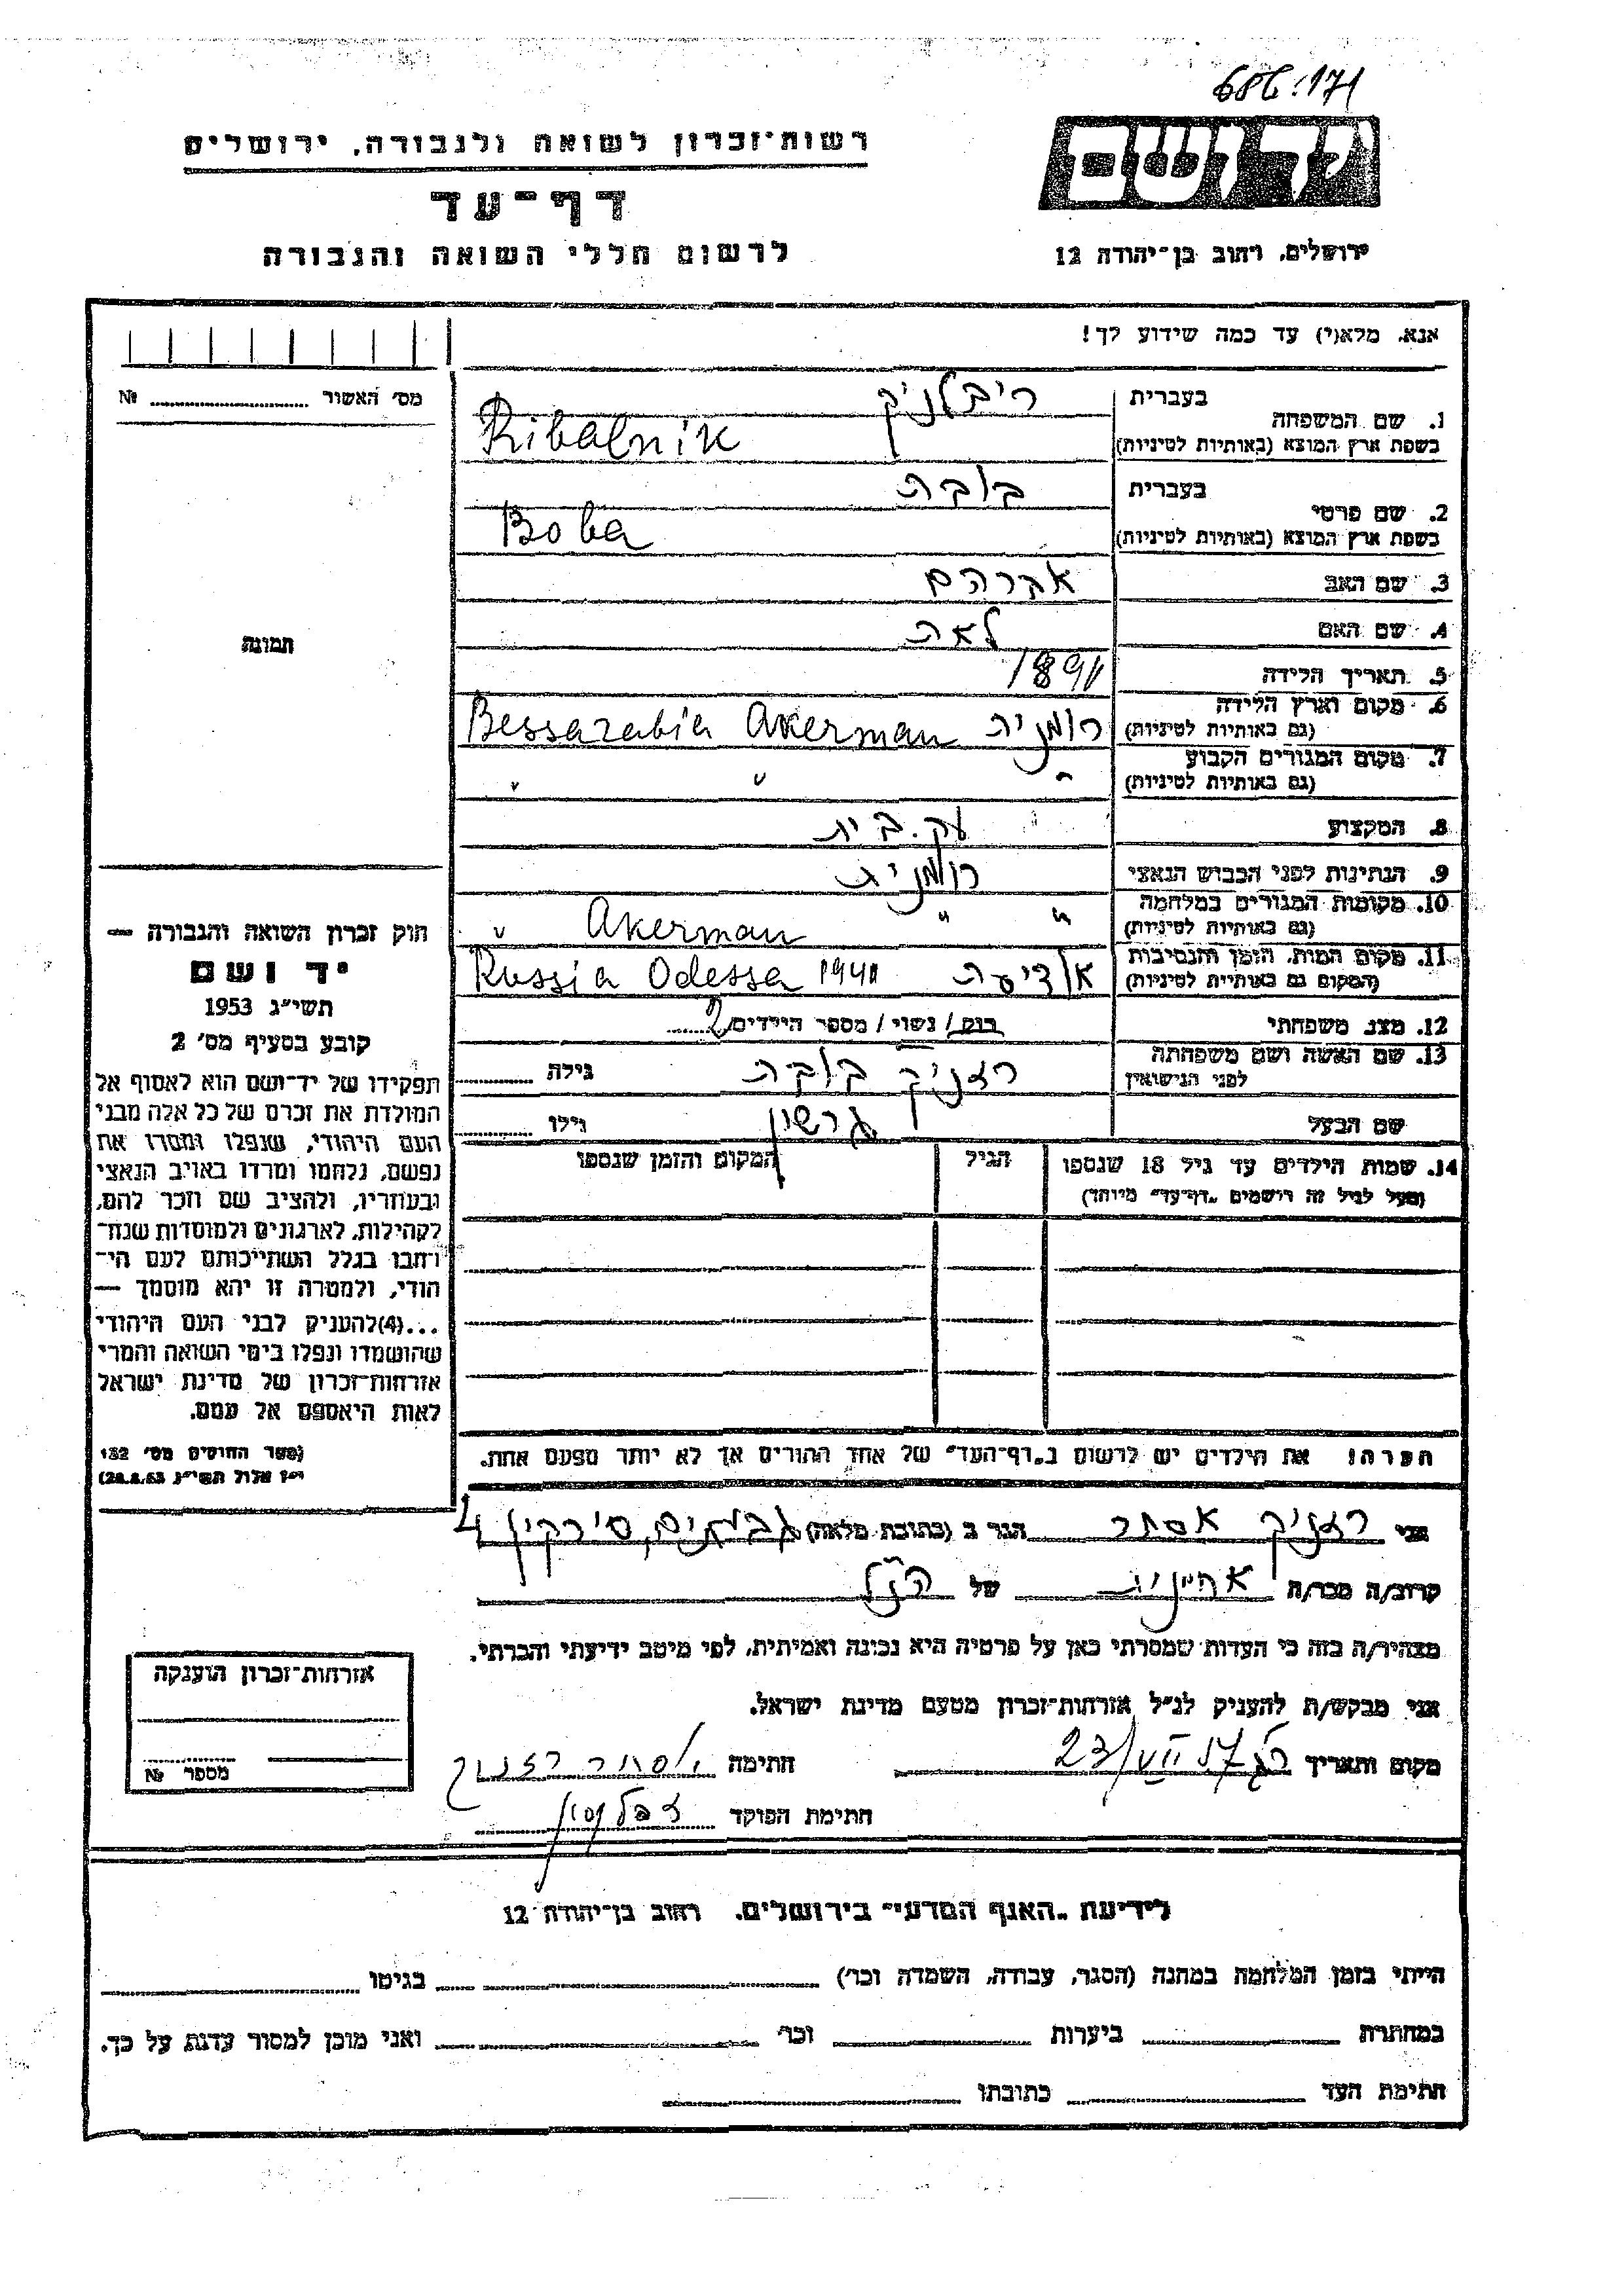 686.171
רשות־זכרון לשואה ולגבורה, ירושלים
דף־עד
לרשום חללי השואה והגבורה
יד ושם
ירושלים, רחוב בן־יהודה 12
אנא, מלא(י) עד כמה שידוע לך!
מס׳ האשור № 
1. שם המשפחה
בעברית ריבלניק
בשפת ארץ המוצא (באותיות לטיניות) Ribalnik
2. שם פרטי
בעברית בובה
בשפת ארץ המוצא (באותיות לטיניות) Boba
3. שם האב אברהם
4. שם האם לאה
5. תאריך הלידה 1891
6. מקום וארץ הלידה (גם באותיות לטיניות) רומניה Akerman Bessarabia
7. מקום המגורים הקבוע (גם באותיות לטיניות) " " "
8. המקצוע עק. בית
9. הנתינות לפני הכבוש הנאצי רומניה
10. מקומות המגורים במלחמה (גם באותיות לטיניות) " " Akerman "
11. מקום המות, הזמן והנסיבות (המקום גם באותיות לטיניות) אודיסה 1941 Russia Odessa
12. מצב משפחתי רווק/ נשוי/ מספר הילדים 2
13. שם האשה ושם משפחתה לפני הנישואין רזניק בובה גילה
שם הבעל גרשון גילו
14. שמות הילדים עד גיל 18 שנספו הגיל המקום והזמן שנספו
(מעל לגיל זה רושמים „דף־עד״ מיוחד)
תמונה
חוק זכרון השואה והגבורה —
יד ושם
תשי״ג 1953
קובע בסעיף מס׳ 2
תפקידו של יד־ושם הוא לאסוף אל
המולדת את זכרם של כל אלה מבני
העם היהודי, שנפלו ומסרו את
נפשם, נלחמו ומרדו באויב הנאצי
ובעוזריו, ולהציב שם וזכר להם,
לקהילות, לארגונים ולמוסדות שנח־
רבו בגלל השתייכותם לעם הי־
הודי, ולמטרה זו יהא מוסמך —
...(4) להעניק לבני העם היהודי
שהושמדו ונפלו בימי השואה והמרי
אזרחות־זכרון של מדינת ישראל
לאות היאספם אל עמם.
(ספר החוקים מס׳ 132
י״ז אלול תשי״ג 28.8.53)
הערה! את הילדים יש לרשום ב„דף־העד״ של אחד ההורים אך לא יותר מפעם אחת.
אני רזניק אסתר הגר ב (כתובת מלאה) גבעתיים, סירקין 4
קרוב/ה מכר/ה אחיינית של הנ״ל
מצהיר/ה בזה כי העדות שמסרתי כאן על פרטיה היא נכונה ואמיתית, לפי מיטב ידיעתי והכרתי.
אני מבקש/ת להעניק לנ״ל אזרחות־זכרון מטעם מדינת ישראל.
מקום ותאריך 23/VII 57 חתימה אסתר רזניק
חתימת הפוקד
אזרחות־זכרון הוענקה
מספר №
לידיעת „האגף המדעי״ בירושלים, רחוב בן־יהודה 12
הייתי בזמן המלחמה במחנה (הסגר, עבודה, השמדה וכו׳) בגיטו
במחתרת ביערות וכו׳ ואני מוכן למסור עדות על כך.
חתימת העד כתובתו